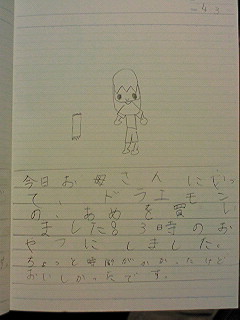 今日お母さんにいっ
て、ドラエモン
の、あめを買い
ました。3時のお
やつにしました。
ちょっと時間がかかったけど
おいしかったです。